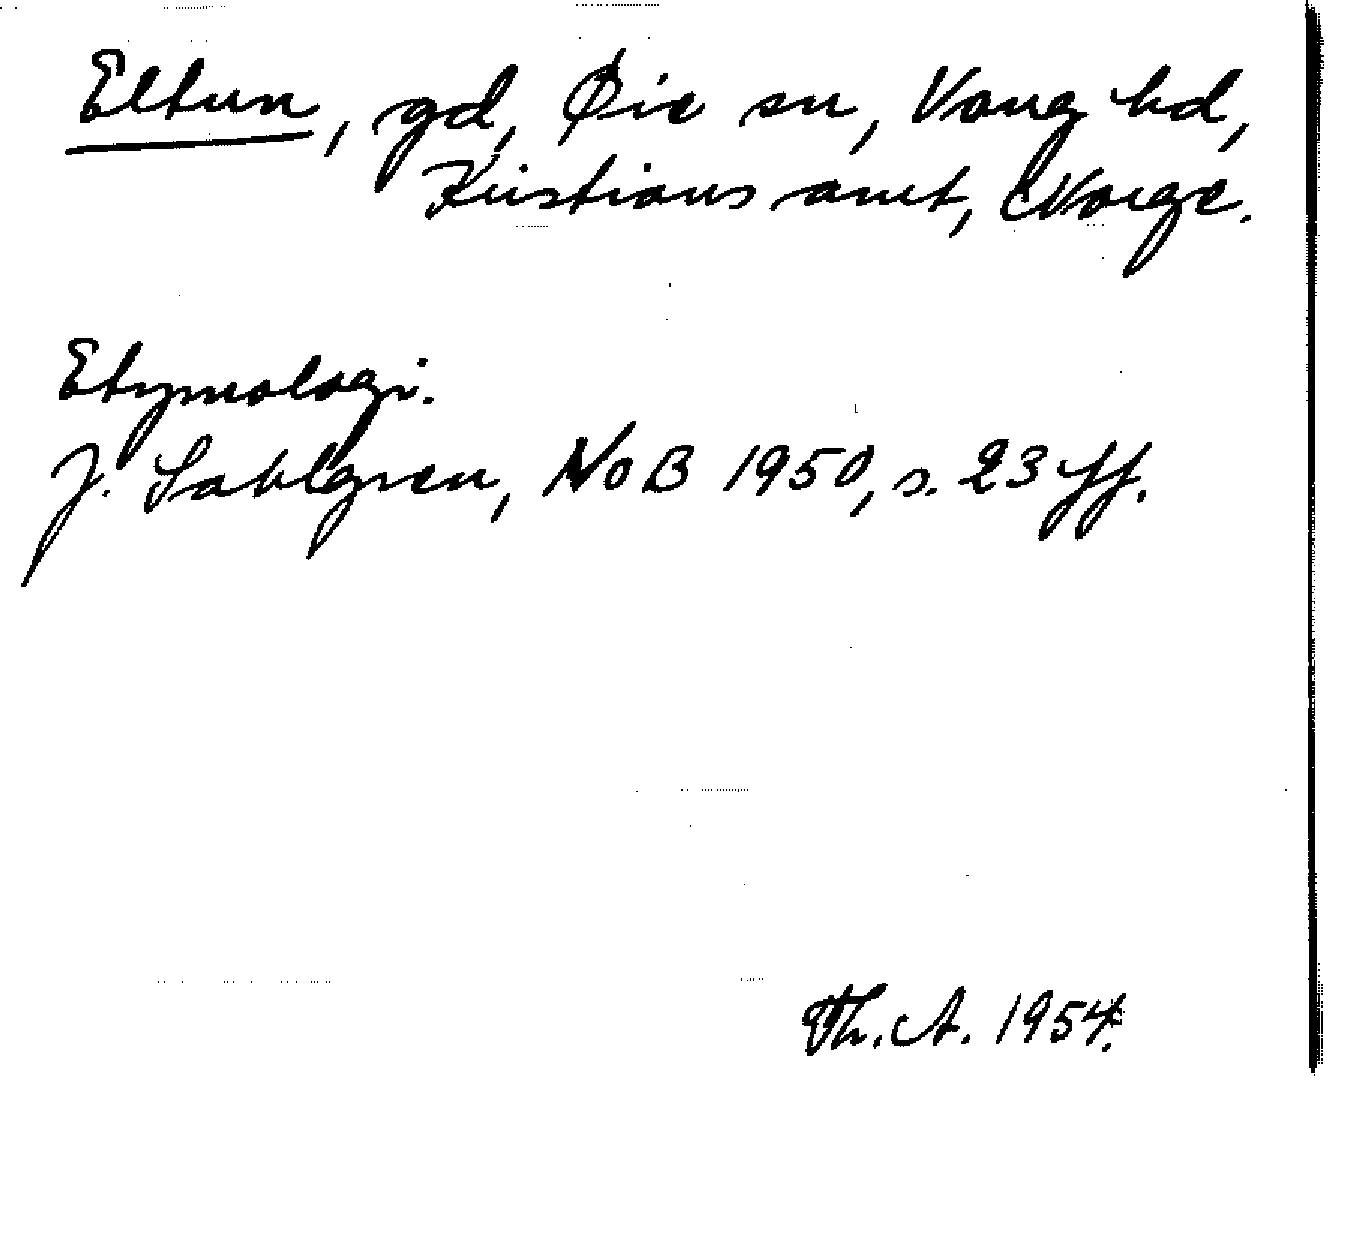 Eltun, gd, Øie sn, Vang hd,
Kristians amt, Norge.
Etymologi.
J. Sahlgren, NoB 1950, s. 23 ff.
Th. A. 1954.